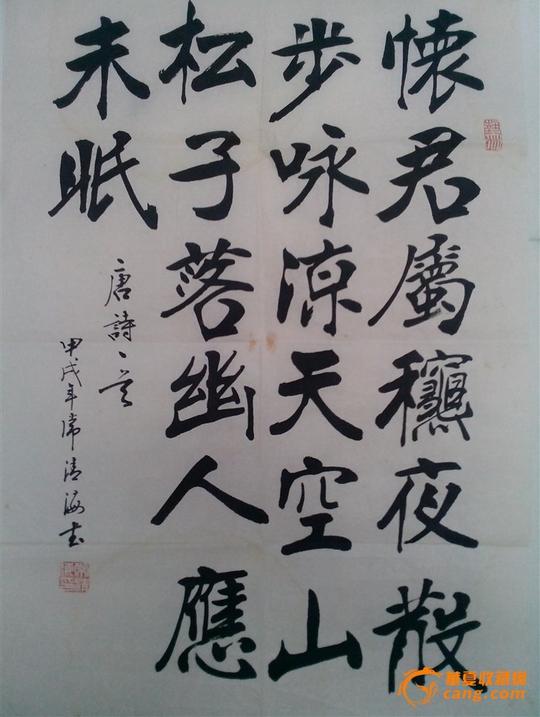 懷君屬龝夜散
步咏涼天空山
松子落幽人應
未眠
唐詩一首
甲戌年常清海书
華夏收藏網
cang.com